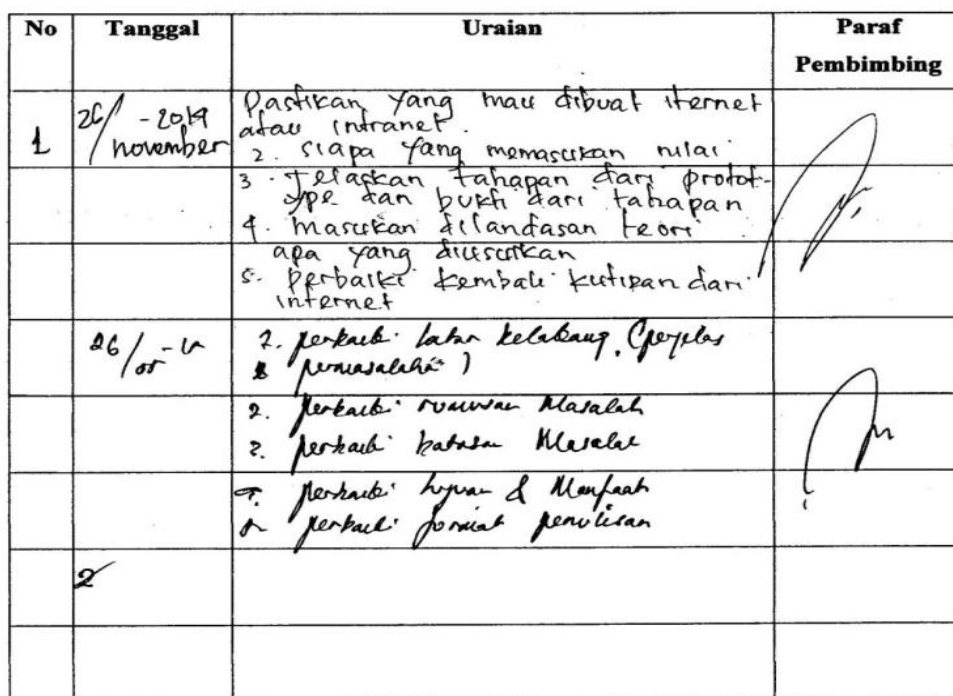 No Tanggal Uraian Paraf
Pembimbing
1 26/ -2019 Pastikan yang mau dibuat iternet
november atau intranet.
2. siapa yang memasukan nilai
3. Jelaskan tahapan dari protot-
ype dan bukti dari tahapan
4. masukan dilandasan teori
apa yang diusulkan
5. perbaiki kembali kutipan dari
internet
26/05 perbaiki latar belakang. (perjelas
permasalahan)
2. perbaiki rumusan Masalah
3. perbaiki batasan Masalah
perbaiki tujuan & Manfaat
perbaiki format penulisan
2